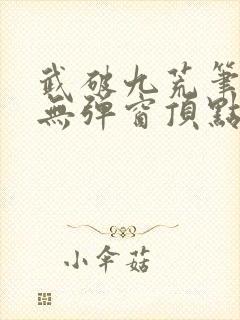 武破九荒筆
無彈窗頂點
小傘菇